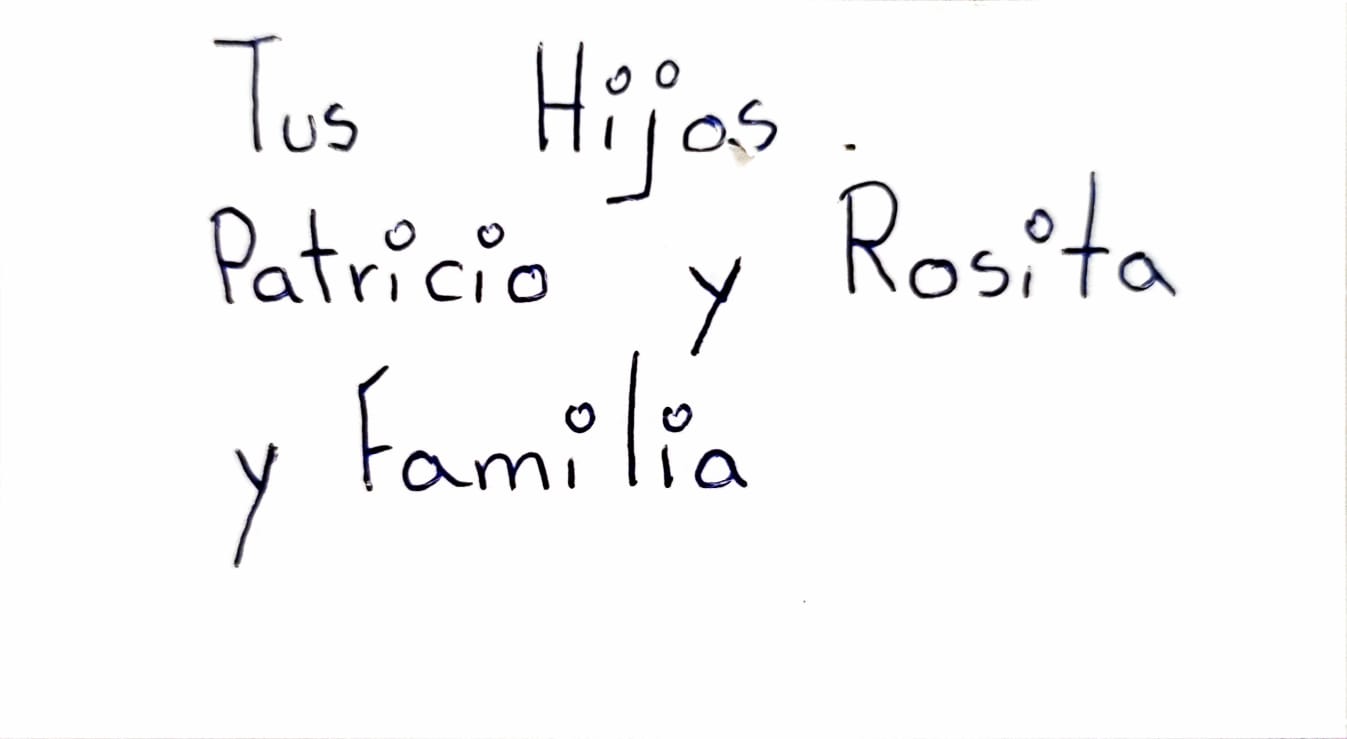 Tus Hijos.
Patricio y Rosita
y Familia